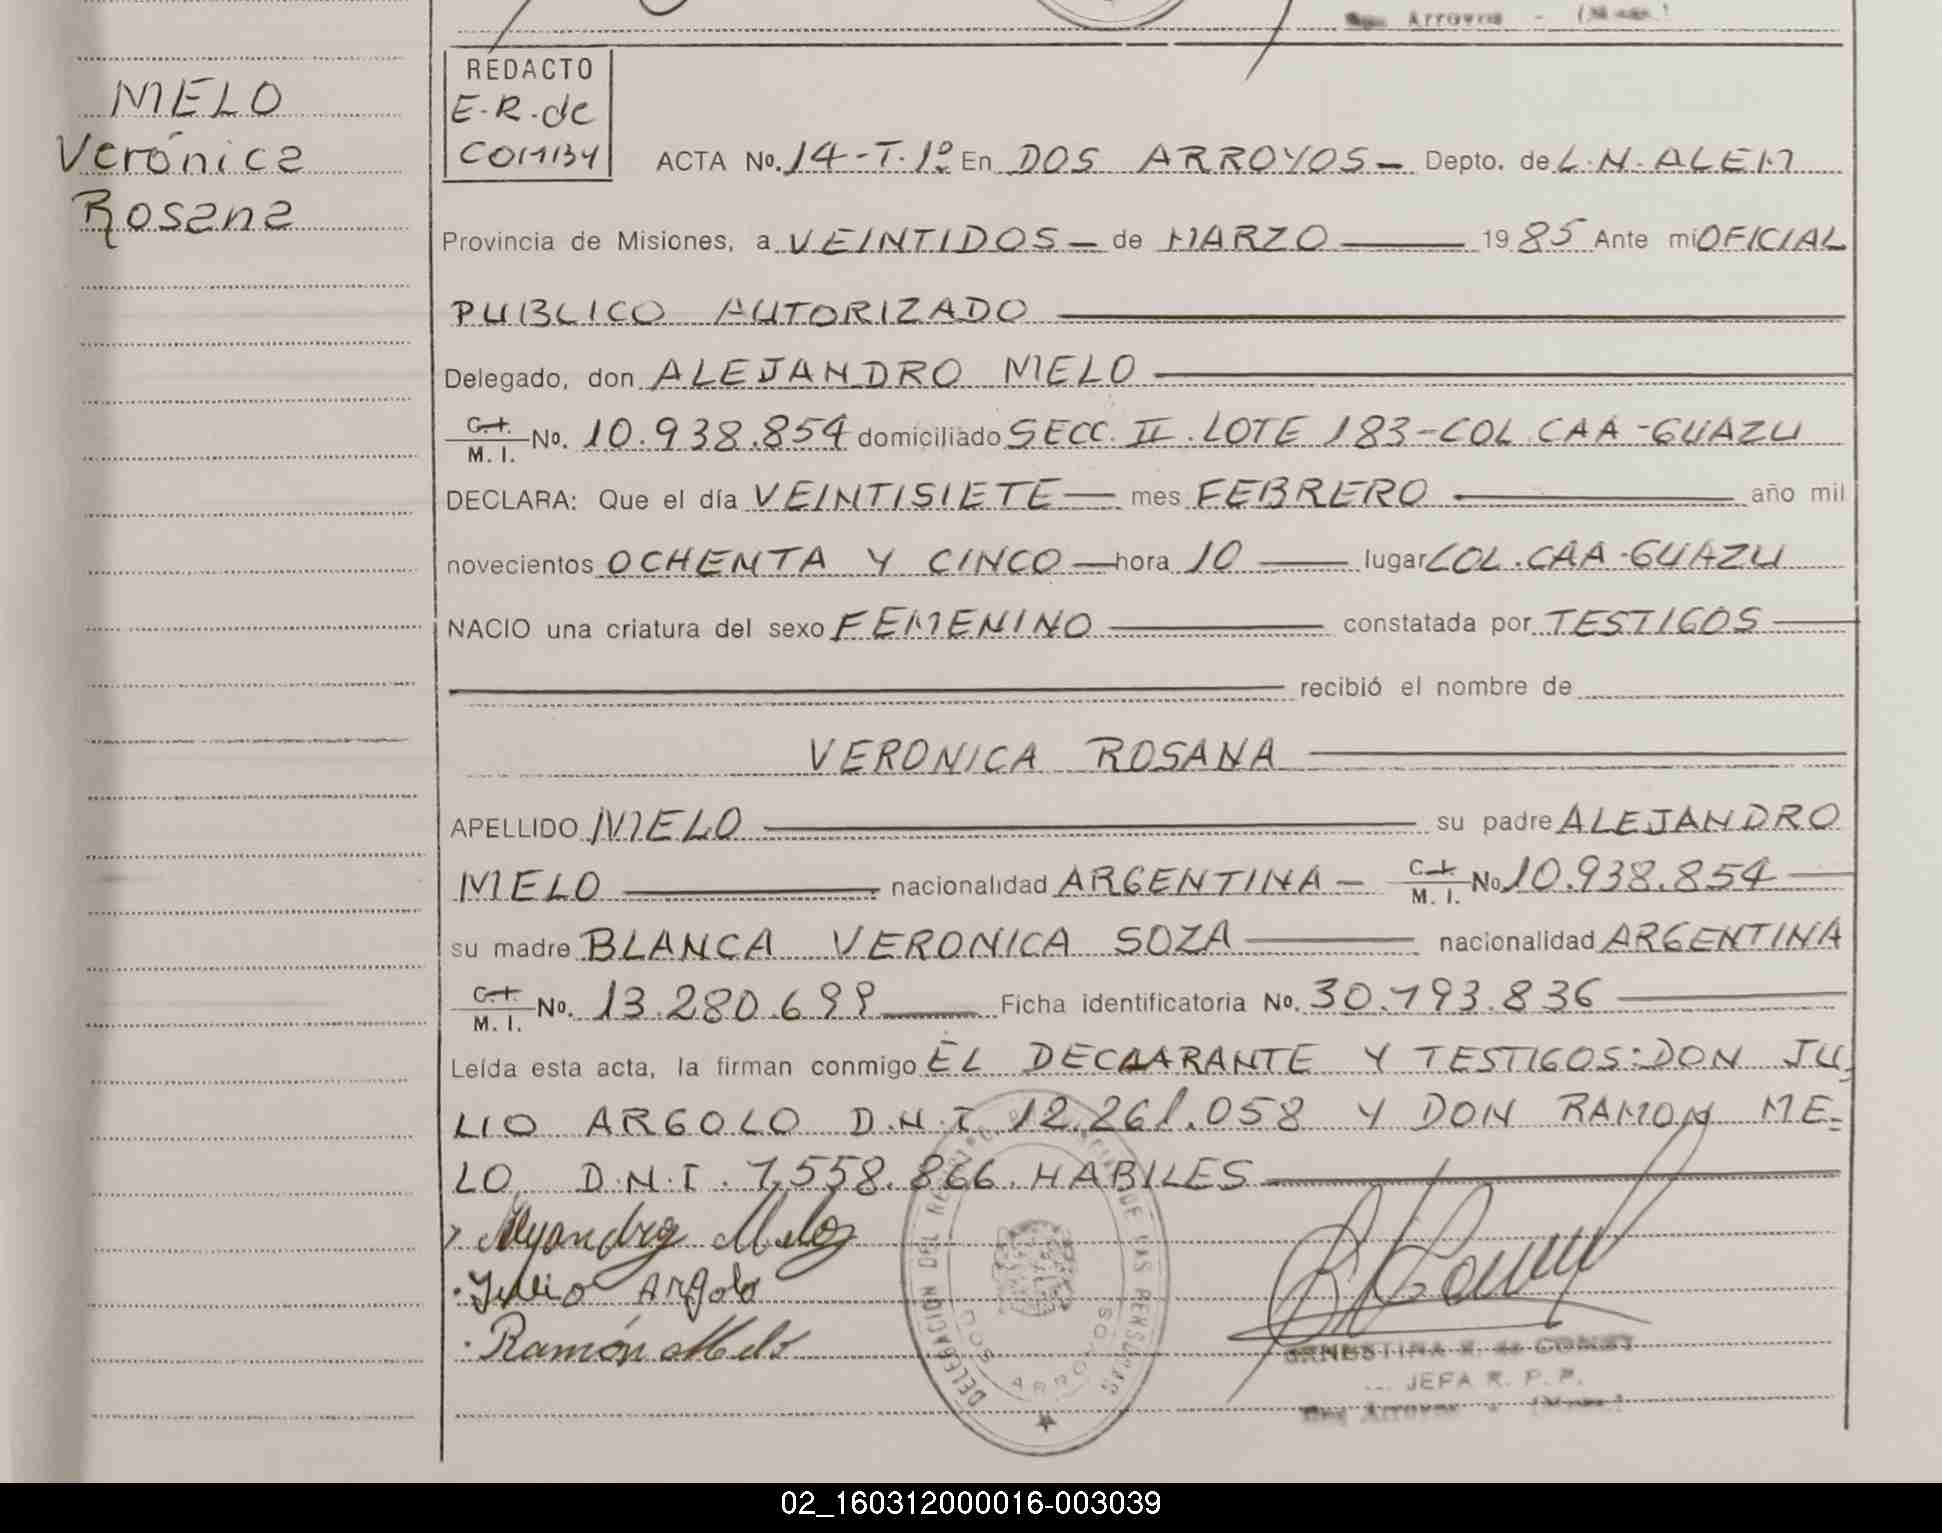 Dos Arroyos - (Mnes.)
MELO
Verónica
Rosana
REDACTO
E.R. de
COMBY
ACTA No. 14-T.1º En DOS ARROYOS - Depto. de L.N. ALEM
Provincia de Misiones, a VEINTIDOS - de MARZO 19 85 Ante mi OFICIAL
PUBLICO AUTORIZADO
Delegado, don ALEJANDRO MELO
C.I. M. I. No. 10.938.854 domiciliado SECC. II. LOTE 183-COL. CAA-GUAZU
DECLARA: Que el día VEINTISIETE mes FEBRERO año mil
novecientos OCHENTA Y CINCO hora 10 lugar COL. CAA-GUAZU
NACIO una criatura del sexo FEMENINO constatada por TESTIGOS
recibió el nombre de
VERONICA ROSANA
APELLIDO MELO su padre ALEJANDRO
MELO nacionalidad ARGENTINA - C.I. M. I. No 10.938.854
su madre BLANCA VERONICA SOZA nacionalidad ARGENTINA
C.I. M. I. No. 13.280.699 Ficha identificatoria No. 30.793.836
Leída esta acta, la firman conmigo EL DECLARANTE Y TESTIGOS: DON JU
LIO ARGOLO D.N.I 12.261.058 Y DON RAMON ME=
LO, D.N.I. 7.558.866. HABILES
Alejandro Melo
Julio Argolo
Ramón Melo
DELEGACION DEL REGISTRO DE LAS PERSONAS
DOS ARROYOS
ERNESTINA R. de COMBY
JEFA R. P. P.
Dos Arroyos - (Mnes.)
02_160312000016-003039